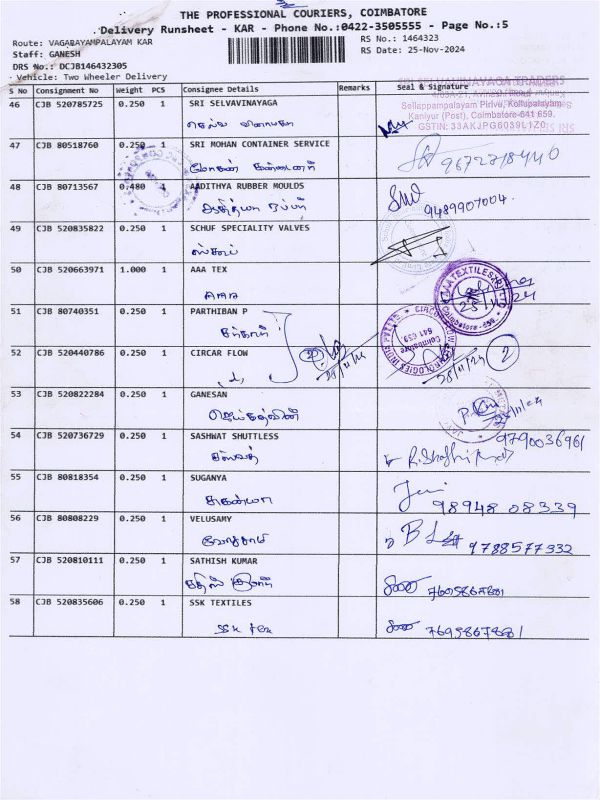 THE PROFESSIONAL COURIERS, COIMBATORE
Delivery Runsheet - KAR - Phone No.:0422-3505555 - Page No.:5
Route: VAGABAYAMPALAYAM KAR
RS No.: 1464323
Staff: GANESH
RS Date: 25-Nov-2024
DRS No.: DCJB146432305
Vehicle: Two Wheeler Delivery
S No Consignment No Weight PCS Consignee Details Remarks Seal & Signature
46 CJB 520785725 0.250 1 SRI SELVAVINAYAGA
செல்வ விநாயகா
SRI SELVAVINAYAGA TRADERS
Sellappampalayam Pirivu, Kollupalayam,
Kaniyur (Post), Coimbatore-641 659.
GSTIN: 33AKJPG6039L1Z0
47 CJB 80518760 0.250 1 SRI MOHAN CONTAINER SERVICE
மோகன்
48 CJB 80713567 0.480 AADITHYA RUBBER MOULDS
ஆதித்யா ரப்பர்
9489907004
49 CJB 520835822 0.250 1 SCHUF SPECIALITY VALVES
50 CJB 520663971 1.000 1 AAA TEX
AAA TEXTILES
Coimbatore
51 CJB 80740351 0.250 1 PARTHIBAN P
52 CJB 520440786 0.250 1 CIRCAR FLOW
Coimbatore
641 659
2
53 CJB 520822284 0.250 1 GANESAN
54 CJB 520736729 0.250 1 SASHWAT SHUTTLESS
9790036961
55 CJB 80818354 0.250 1 SUGANYA
சுகன்யா
98948 08339
56 CJB 80808229 0.250 1 VELUSAMY
வேலுசாமி
9788577332
57 CJB 520810111 0.250 1 SATHISH KUMAR
சதிஸ் குமார்
58 CJB 520835606 0.250 1 SSK TEXTILES
SSK tex